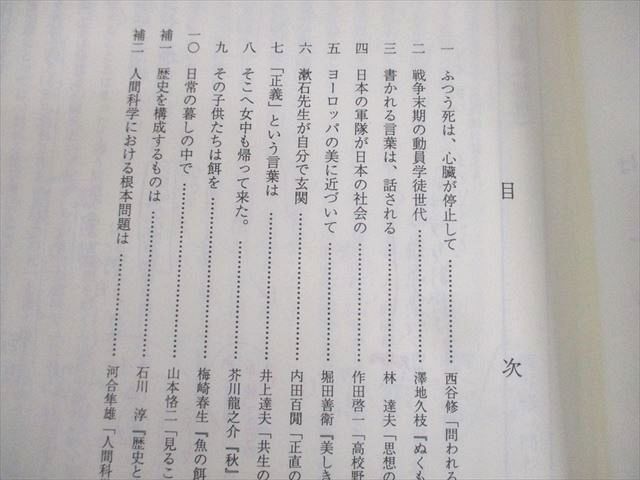 目次
一 ふつう死は、心臓が停止して…………………西谷修「問われる
二 戦争末期の動員学徒世代…………………澤地久枝『ぬくも
三 書かれる言葉は、話される…………………林 達夫「思想の
四 日本の軍隊が日本の社会の…………………作田啓一「高校野
五 ヨーロッパの美に近づいて…………………堀田善衛『美しき
六 漱石先生が自分で玄関…………………内田百閒「正直の
七 「正義」という言葉は…………………井上達夫「共生の
八 そこへ女中も帰って来た。…………………芥川龍之介『秋』
九 その子供たちは餌を…………………梅崎春生『魚の餌
一〇 日常の暮しの中で…………………山本恪二「見るこ
補一 歴史を構成するものは…………………石川 淳『歴史と
補二 人間科学における根本問題は…………………河合隼雄「人間科